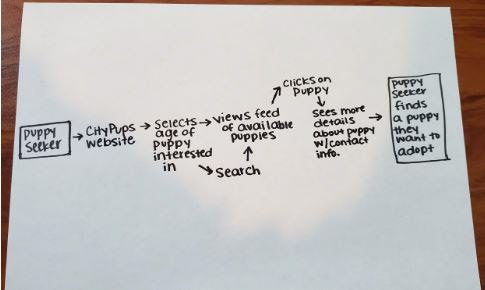 Puppy
Seeker
CityPups
website
Selects
age of
puppy
interested
in
Search
views feed
of available
puppies
Clicks on
puppy
Sees more
details
about puppy
w/contact
info.
puppy
Seeker
finds
a puppy
they
want to
adopt